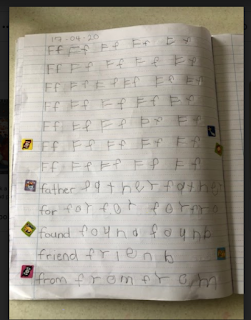 17-04-20
Ff Ff Ff Ff Ff
Ff Ff Ff Ff Ff
Ff Ff Ff Ff Ff Ff
Ff Ff Ff Ff Ff
Ff Ff Ff Ff Ff
Ff Ff Ff Ff Ff
Ff Ff Ff Ff Ff
father father father
for for for for fro
found found found
friend frienb
from from from